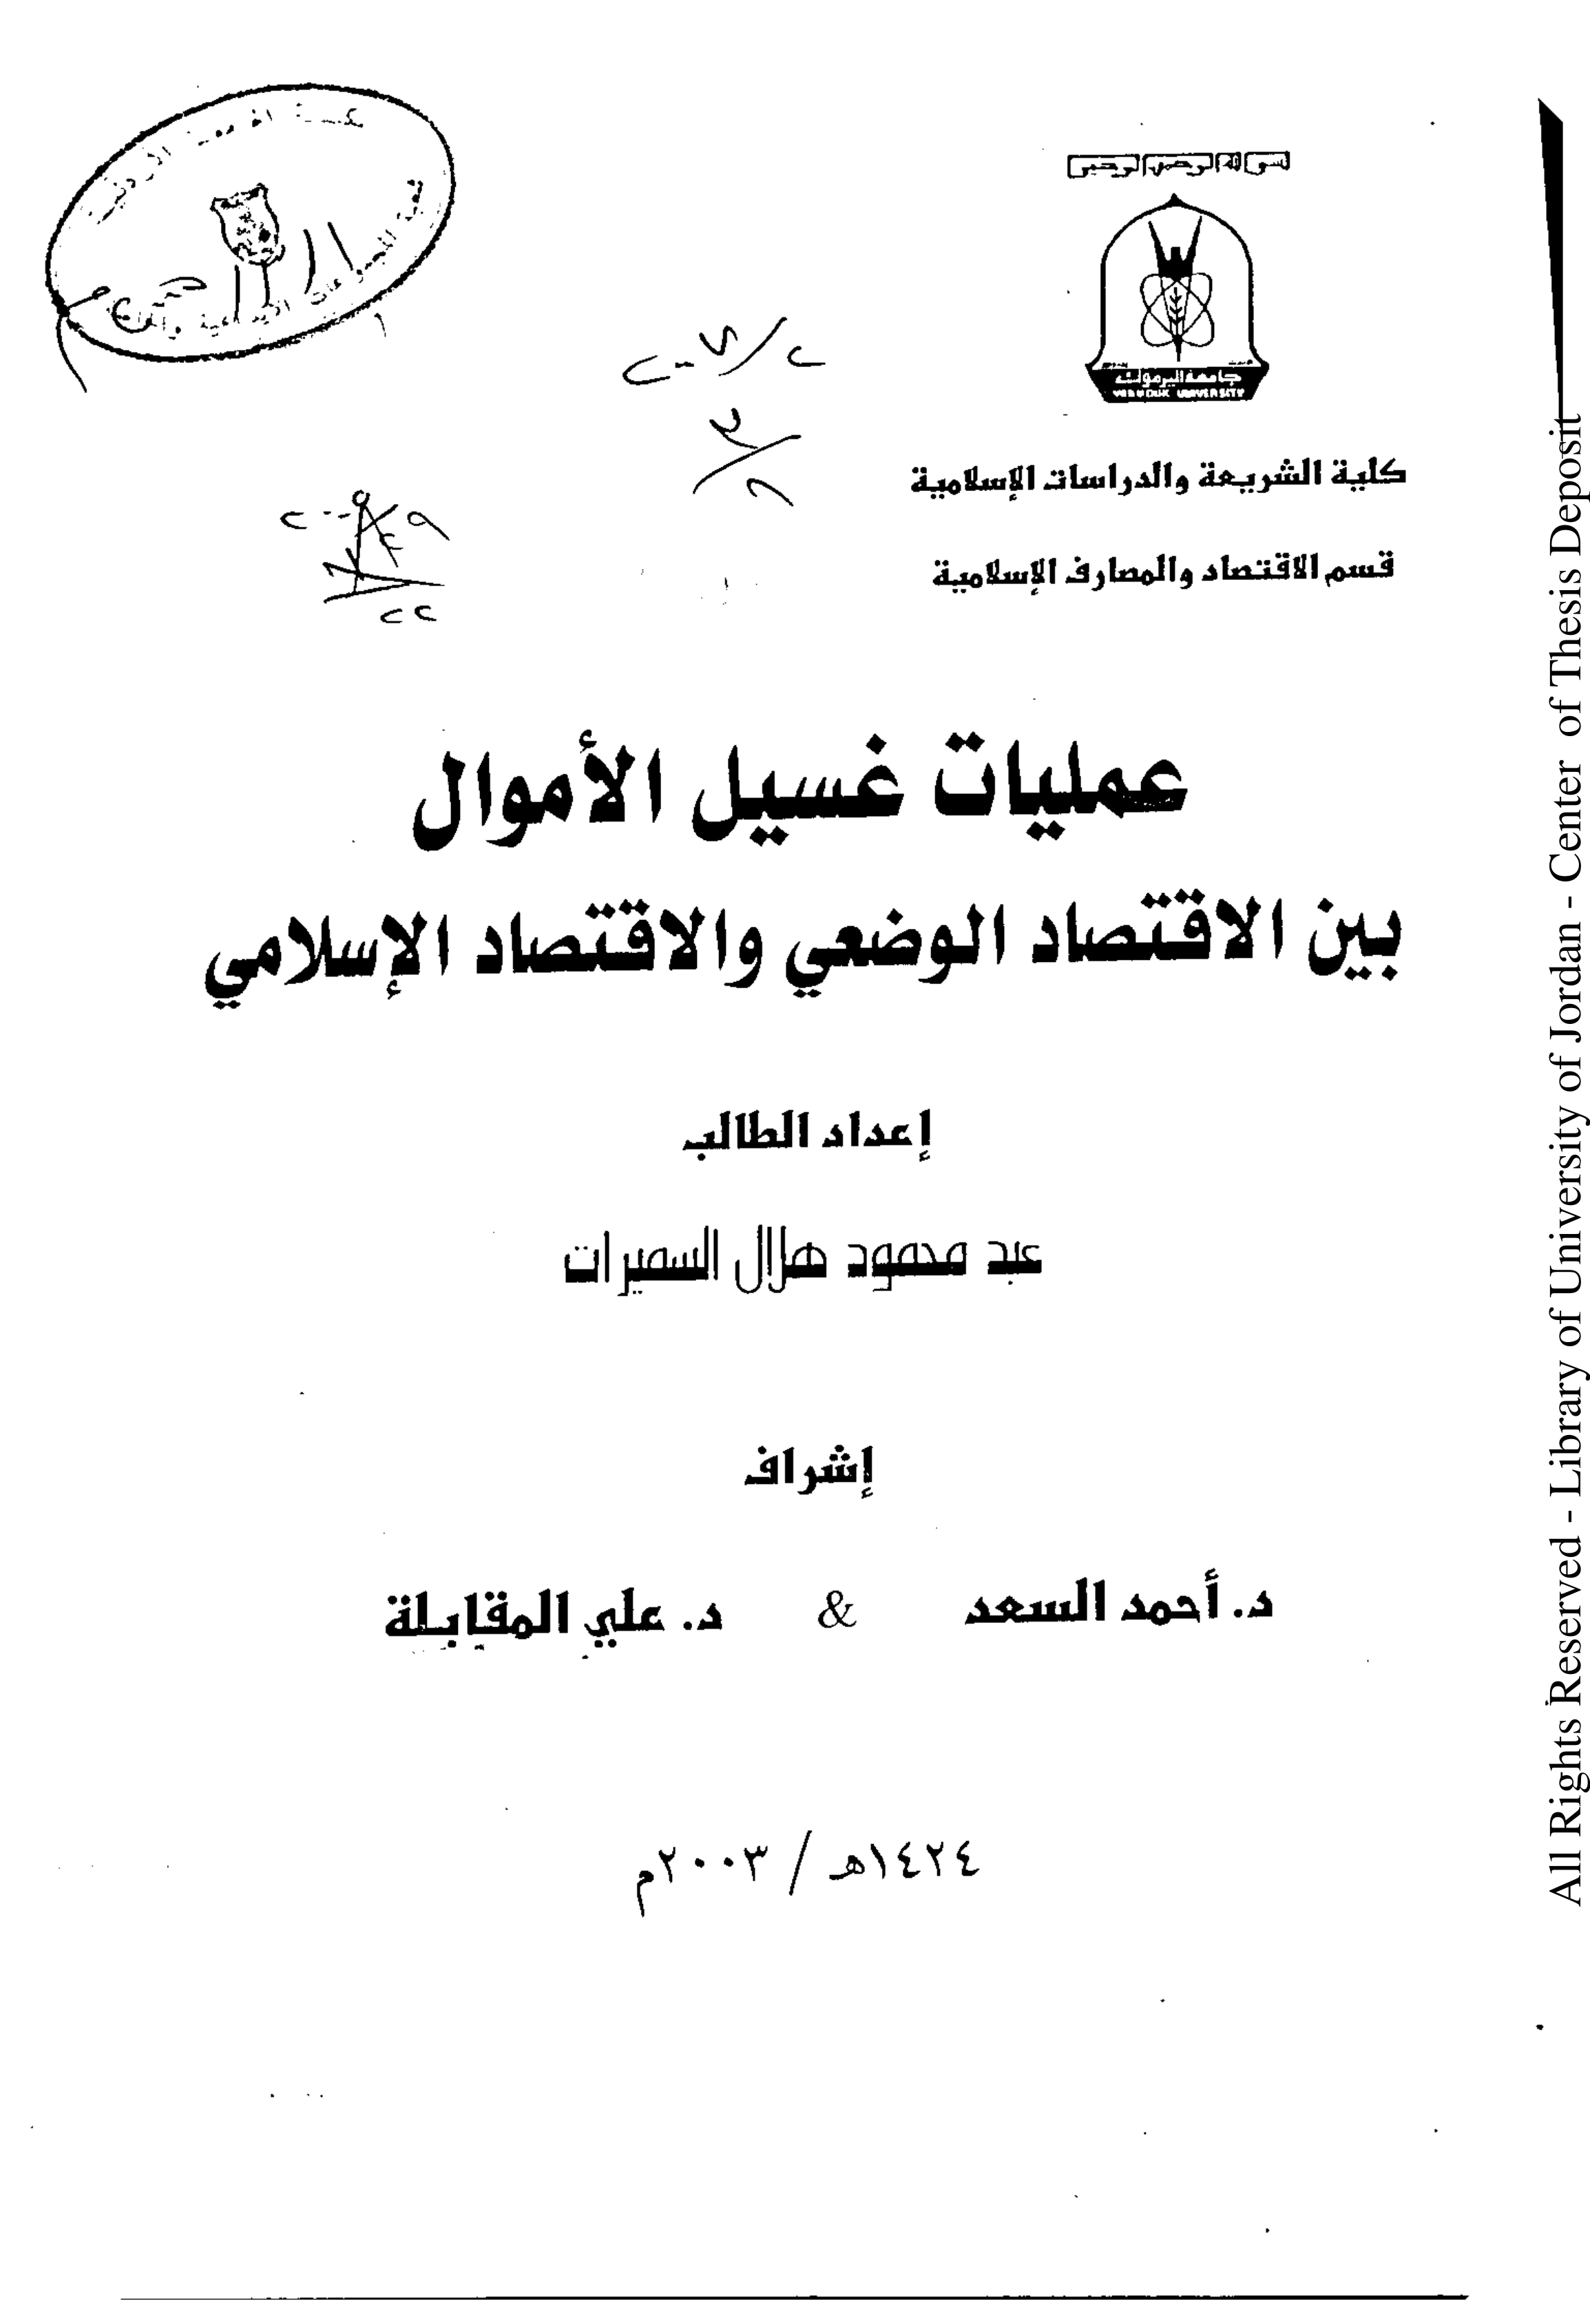 بسم الله الرحمن الرحيم
جامعة اليرموك
YARMOUK UNIVERSITY
كلية الشريعة والدراسات الإسلامية
قسم الاقتصاد والمصارف الإسلامية
عمليات غسيل الأموال
بين الاقتصاد الوضعي والاقتصاد الإسلامي
إعداد الطالب
عبد محمود هلال السميرات
إشراف
د. أحمد السعد & د. علي المقابلة
١٤٢٤هـ / ٢٠٠٣م
All Rights Reserved - Library of University of Jordan - Center of Thesis Deposit